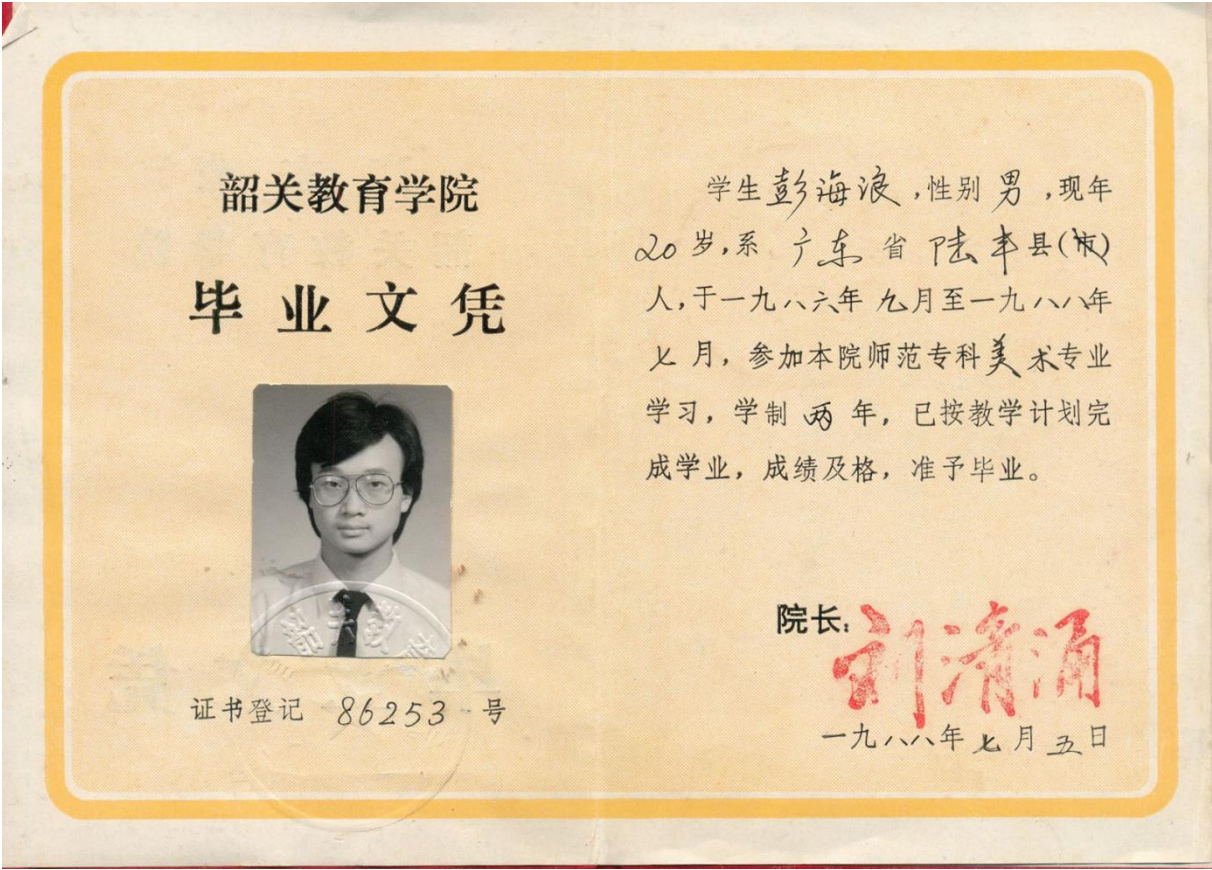 韶关教育学院
毕业文凭
证书登记 86253 号
学生彭海浪,性别 男,现年
20岁,系 广东 省 陆丰县(市)
人,于一九八六年 九月至一九八八年
七月,参加本院师范专科美术专业
学习,学制 两 年,已按教学计划完
成学业,成绩及格,准予毕业。
院长:刘清涌
一九八八年七月五日